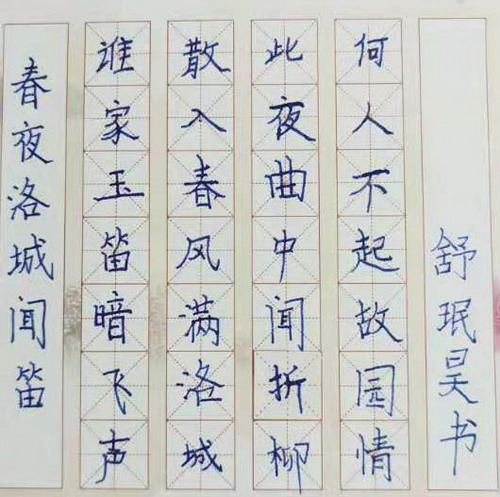 春夜洛城闻笛
谁家玉笛暗飞声
散入春风满洛城
此夜曲中闻折柳
何人不起故园情
舒珉昊书